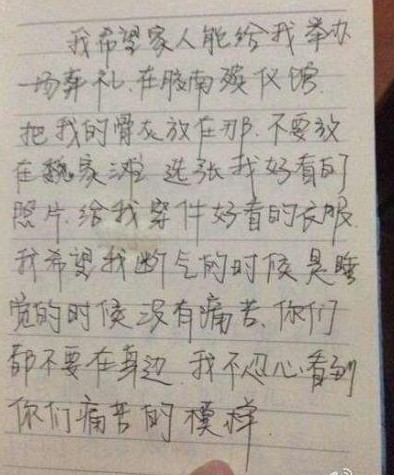 我希望家人能给我举办
一场葬礼.在胶南殡仪馆.
把我的骨灰放在那.不要放
在魏家滩 选张我好看的
照片.给我穿件好看的衣服.
我希望我断气的时候是睡
觉的时候没有痛苦.你们
都不要在身边.我不忍心看到
你们痛苦的模样.